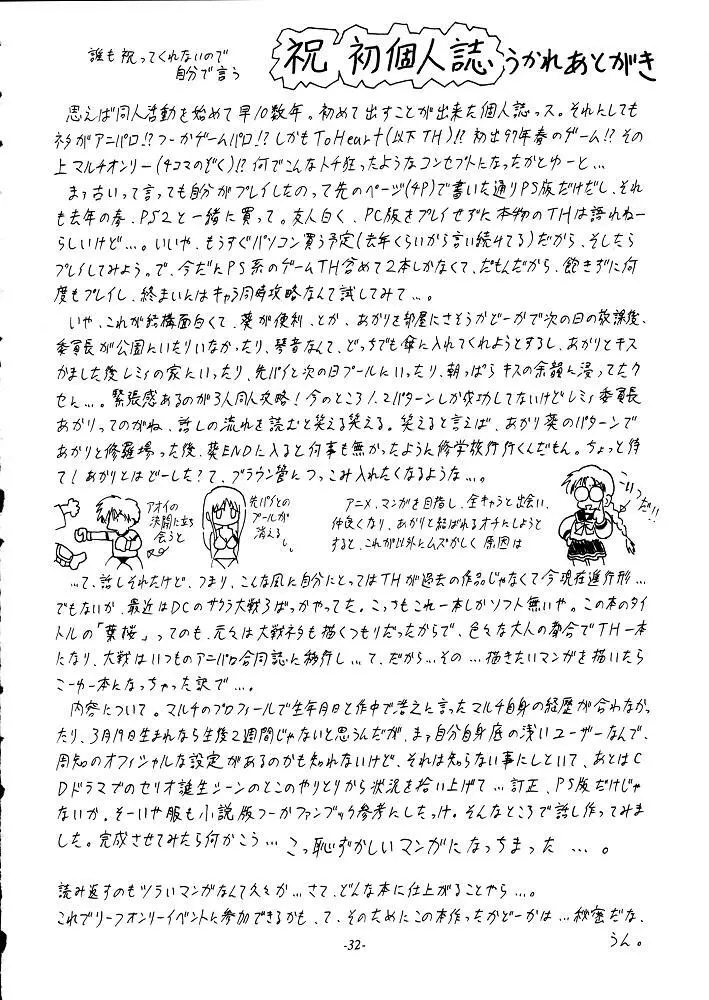 誰も祝ってくれないので
自分で言う
祝 初個人誌 うかれあとがき
思えば同人活動を始めて早10数年。初めて出すことが出来た個人誌っス。それにしても
ネタがアニパロ!?つーかゲームパロ!?しかもToHeart(以下TH)!?初出97年春のゲーム!?その
上マルチオンリー(4コマのぞく)!?何でこんなトチ狂ったようなコンセプトになったかとゆーと…
まぁ古いって言っても自分がプレイしたのって先のページ(4P)で書いた通りPS版だけだし、それ
も去年の春、PS2と一緒に買って。友人曰く、PC版をプレイせずに本物のTHは語れねー
らしいけど…。いいや、もうすぐパソコン買う予定(去年くらいから言い続けてる)だから、そしたら
プレイしてみよう。で、今だにPS系のゲームTH含めて2本しかなくて、だもんだから、飽きずに何
度もプレイし、終まいにはキャラ同時攻略なんて試してみて…。
いや、これが結構面白くて、葵が便利、とか、あかりを部屋にさそうかどーかで次の日の放課後、
委員長が公園にいたりいなかったり、琴音なんて、どっちでも傘に入れてくれようとするし、あかりとキス
かました後レミィの家にいったり、先パイと次の日プールにいったり、朝っぱらキスの余韻に浸ってたク
せに…。緊張感あるのが3人同人攻略!今のところ1.2パターンしか成功してないけどレミィ委員長
あかりってのがね、話しの流れを読むと笑える笑える。笑えると言えば、あかり葵のパターンで
あかりと修羅場った後、葵ENDに入ると何事も無かったように修学旅行行くんだもん。ちょっと待
て!あかりとはどーした?て、ブラウン管につっこみ入れたくなるような…。
アオイの
決闘に立ち
会うと
先パイとの
プールが
消えるし。
アニメ、マンガを目指し、全キャラと出会い、
仲良くなり、あかりと結ばれるオチにしようと
すると、これが以外にムズかしく原因は
だ!!
…て、話しそれたけど、つまり、こんな風に自分にとってはTHが過去の作品じゃなくて今現在進行形…
でもないか、最近はDCのサクラ大戦3ばっかやってた。こっちもこれ一本しかソフト無いや。この本のタイ
トルの「葉桜」ってのも、元々は大戦ネタも描くつもりだったからで、色々な大人の都合でTH一本
になり、大戦はいつものアニパロ合同誌に移行し…て、だから…その…描きたいマンガを描いたら
こーゆー本になっちゃった訳で…。
内容について。マルチのプロフィールで生年月日と作中で浩之に言ったマルチ自身の経歴が合わなか
ったり、3月19日生まれなら生後2週間じゃないと思うんだが、まぁ自分自身底の浅いユーザーなんで、
周知のオフィシャルな設定があるのかも知れないけど、それは知らない事にしといて、あとはC
Dドラマでのセリオ誕生シーンのとこのやりとりから状況を拾い上げて…訂正、PS版だけじゃ
ないか。そーいや服も小説版つーかファンブック参考にしたっけ。そんなところで話し作ってみま
した。完成させてみたら何かこう… こっ恥ずかしいマンガになっちまった…。
読み返すのもツラいマンガなんて久々か…さて、どんな本に仕上がることやら…。
これでリーフオンリーイベントに参加できるかも、て、そのためにこの本作ったかどーかは…秘密だな、
うん。
-32-